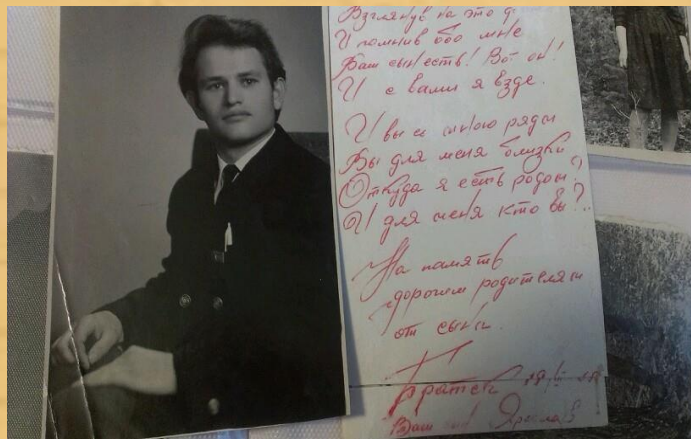 Взглянув на это
И помнив обо мне
Ваш сын есть! Вот он!
И с вами я взде.
И вы со мною рядом
Вы для меня близки
Откуда я есть родом?
И для меня кто вы?..
На память
дорогим родителям
от сына.
Братск
Ваш сын Ярослав